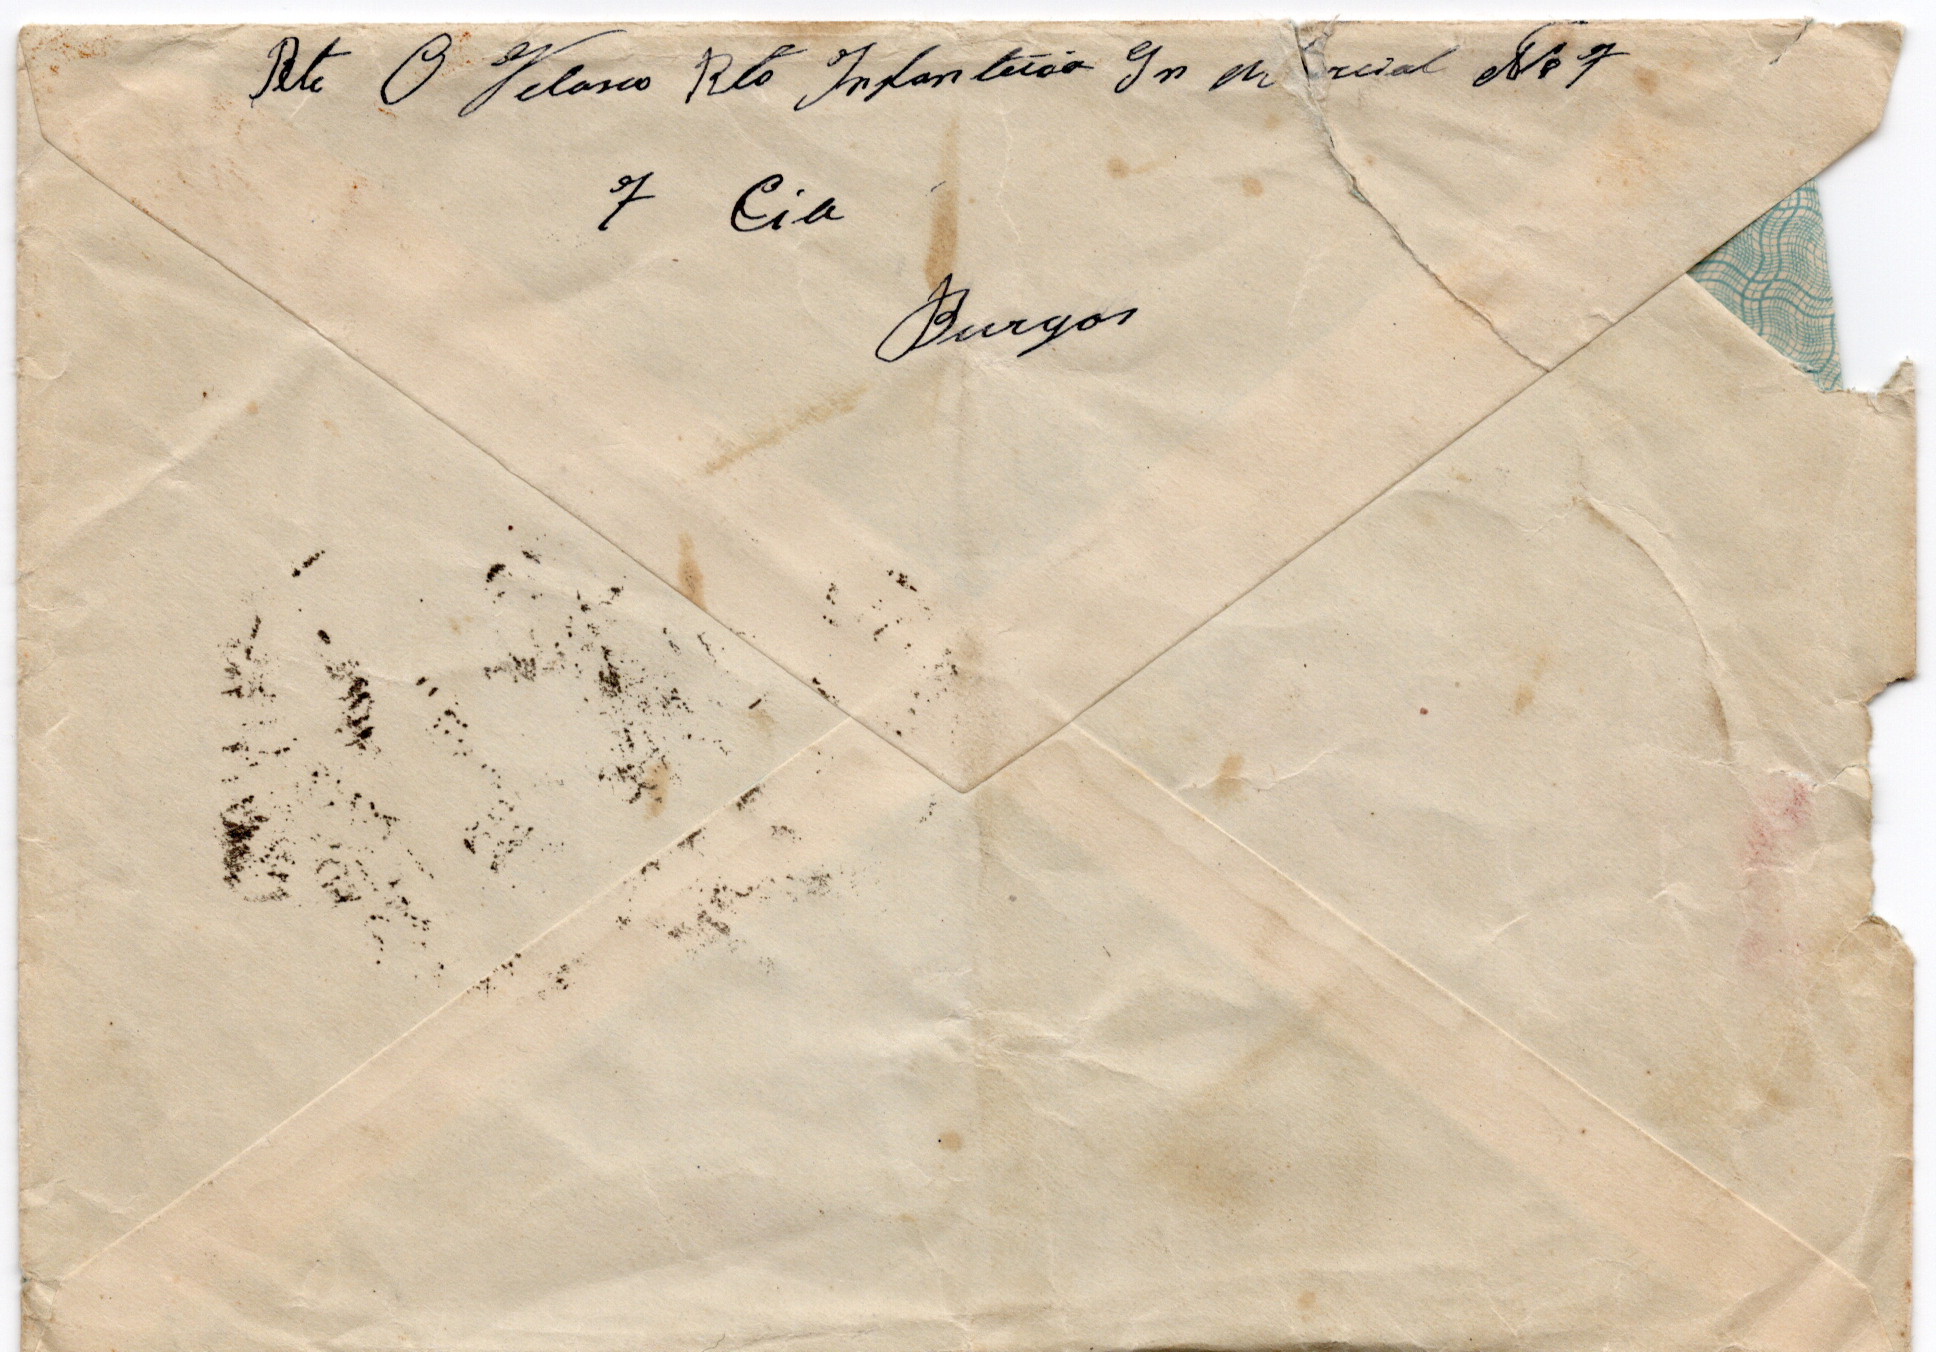 Rte O Velasco Rto Infanteria Sn M rcial No 7
7 Cia
Burgos